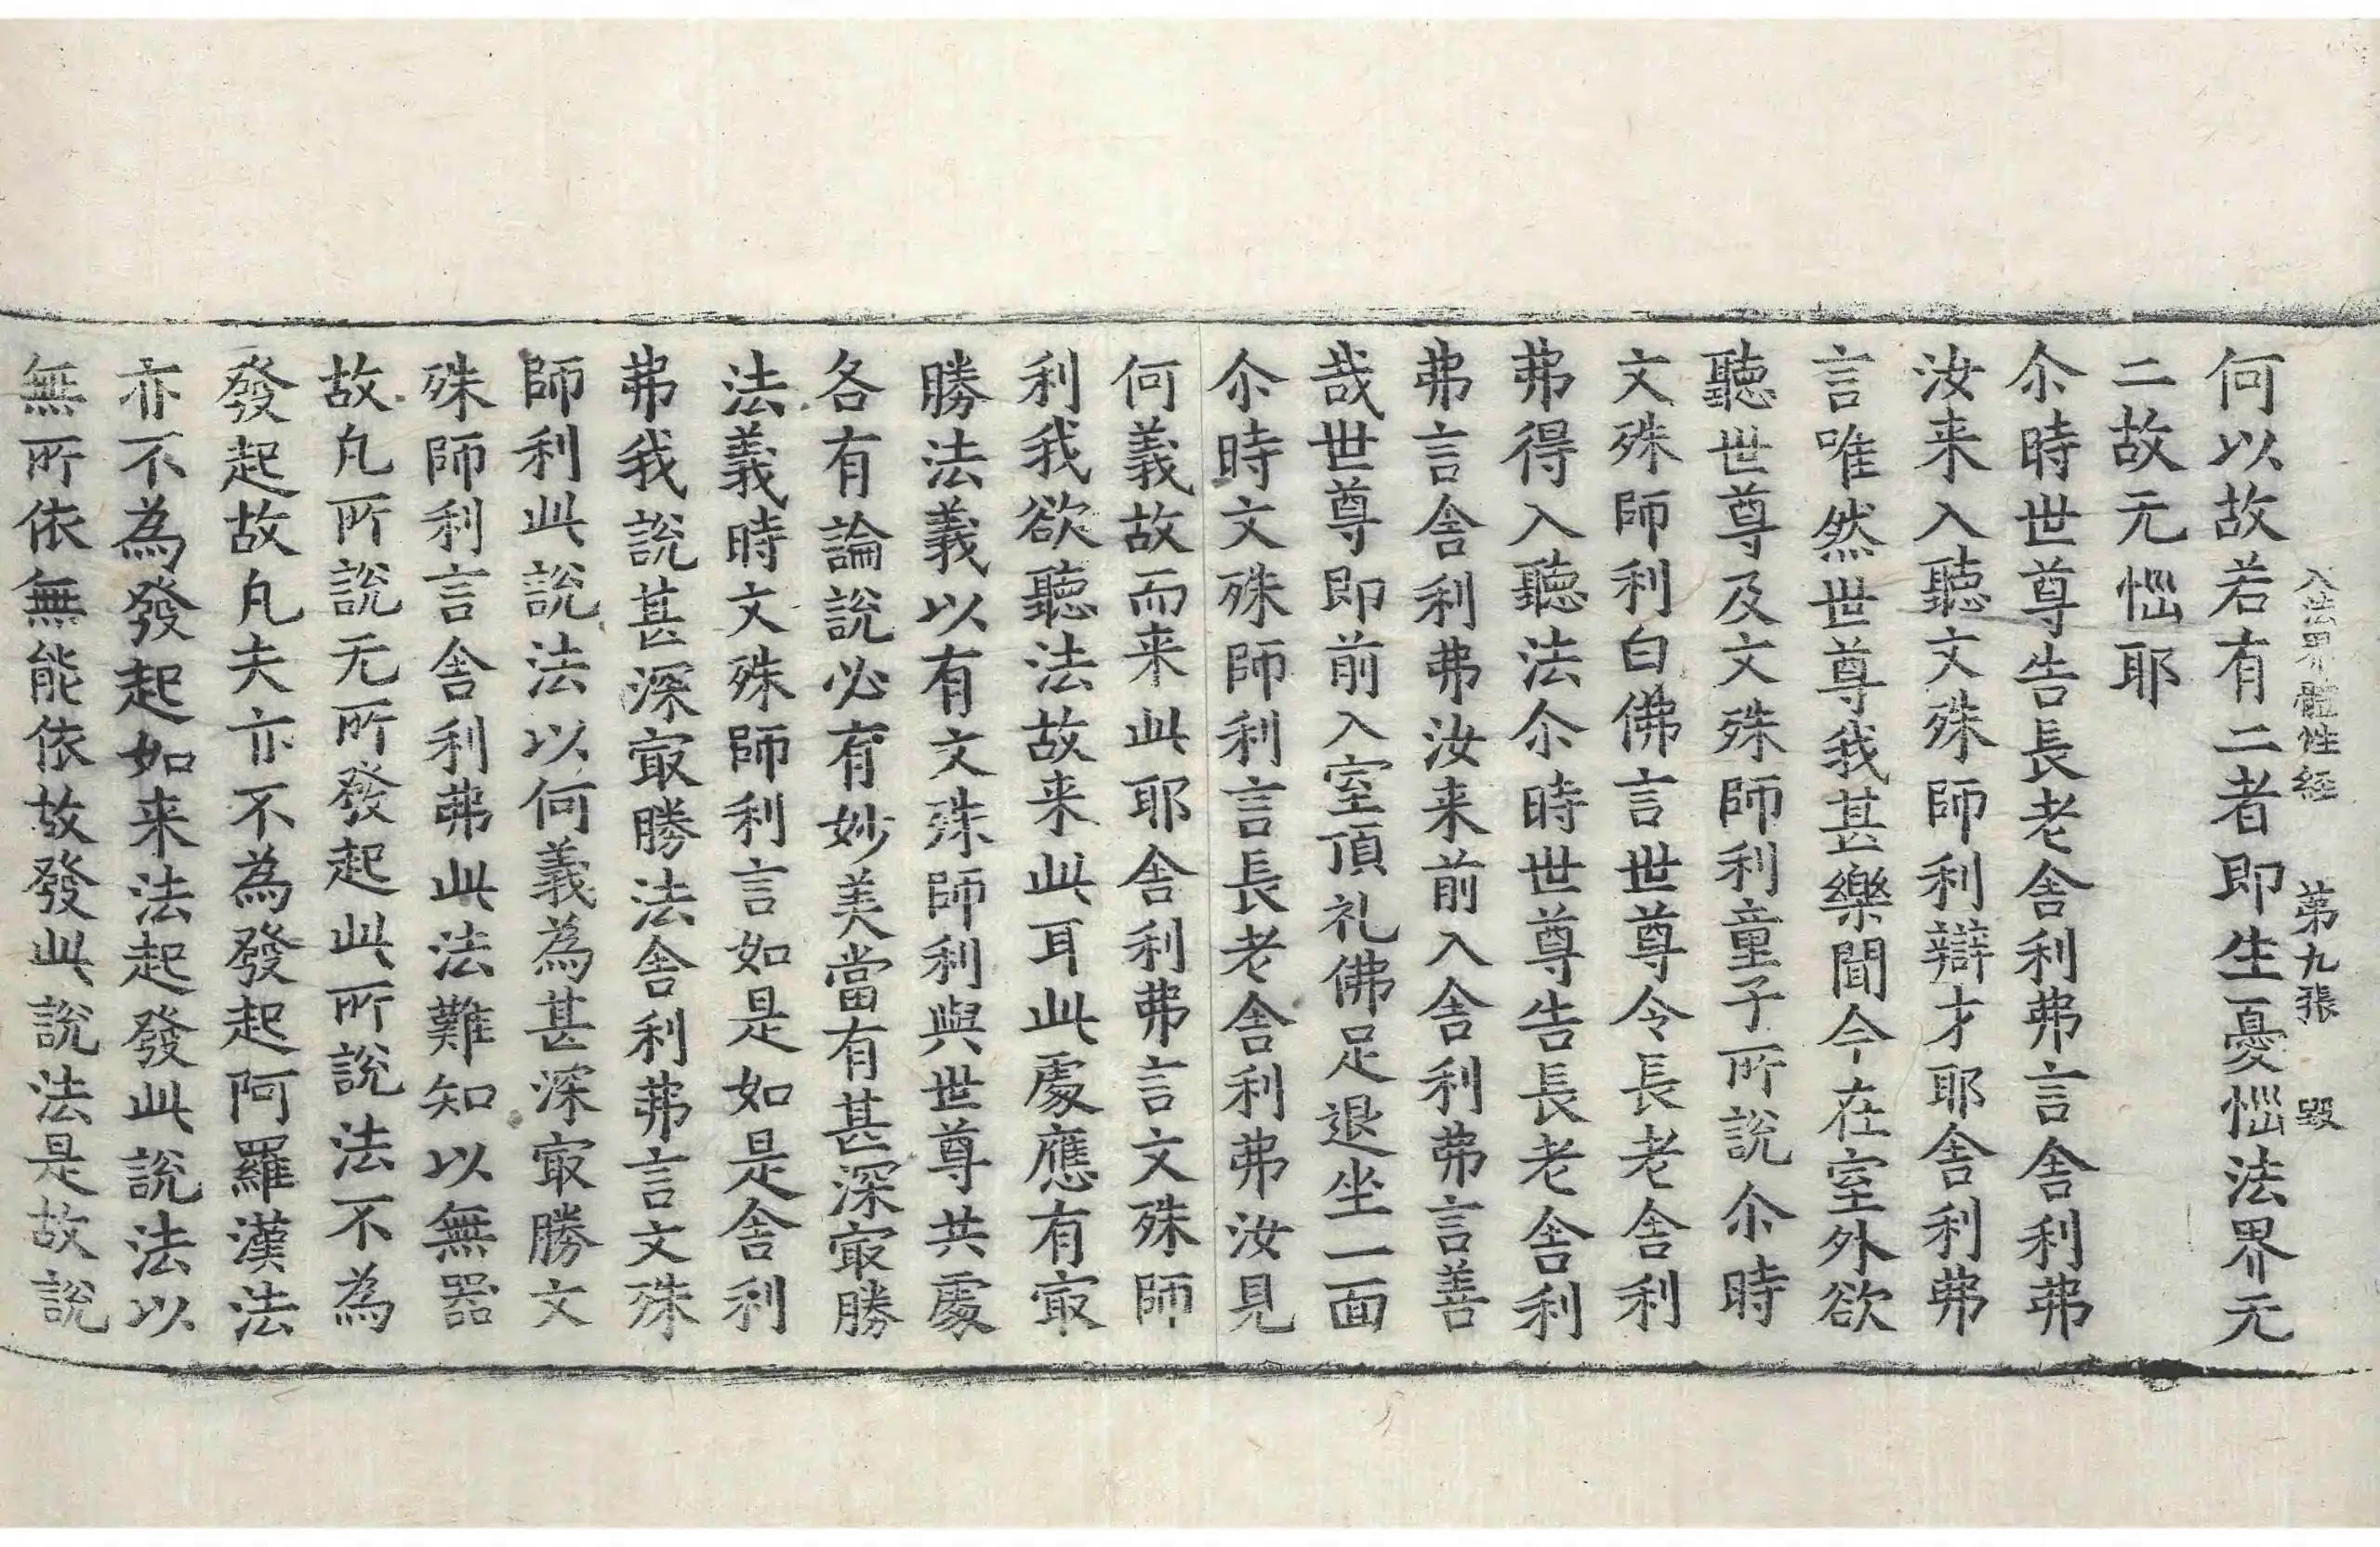 入法界體性経 第九張 毀
何以故若有二者即生憂惱法界无
二故无惱耶
尒時世尊告長老舎利弗言舎利弗
汝来入聽文殊師利辯才耶舎利弗
言唯然世尊我甚樂聞今在室外欲
聽世尊及文殊師利童子所說尒時
文殊師利白佛言世尊令長老舎利
弗得入聽法尒時世尊告長老舎利
弗言舎利弗汝来前入舎利弗言善
哉世尊即前入室頂礼佛足退坐一面
尒時文殊師利言長老舎利弗汝見
何義故而来此耶舎利弗言文殊師
利我欲聽法故来此耳此處應有㝡
勝法義以有文殊師利與世尊共處
各有論說必有妙美當有甚深㝡勝
法義時文殊師利言如是如是舎利
弗我說甚深㝡勝法舎利弗言文殊
師利此說法以何義為甚深㝡勝文
殊師利言舎利弗此法難知以無器
故凡所說无所發起此所說法不為
發起故凡夫亦不為發起阿羅漢法
亦不為發起如来法起發此說法以
無所依無能依故發此說法是故說